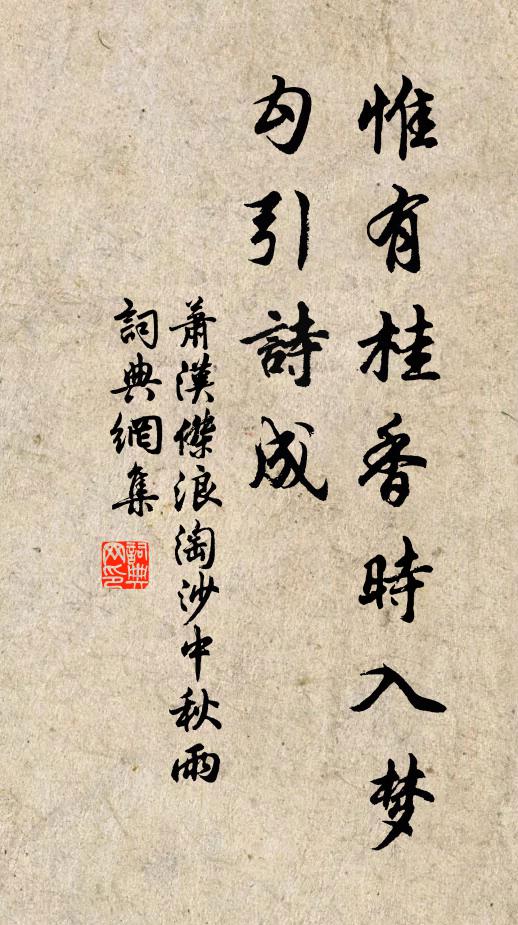 惟有桂香時入梦
勾引詩成
蕭漢傑浪淘沙中秋雨
詞典網集
詞典网印